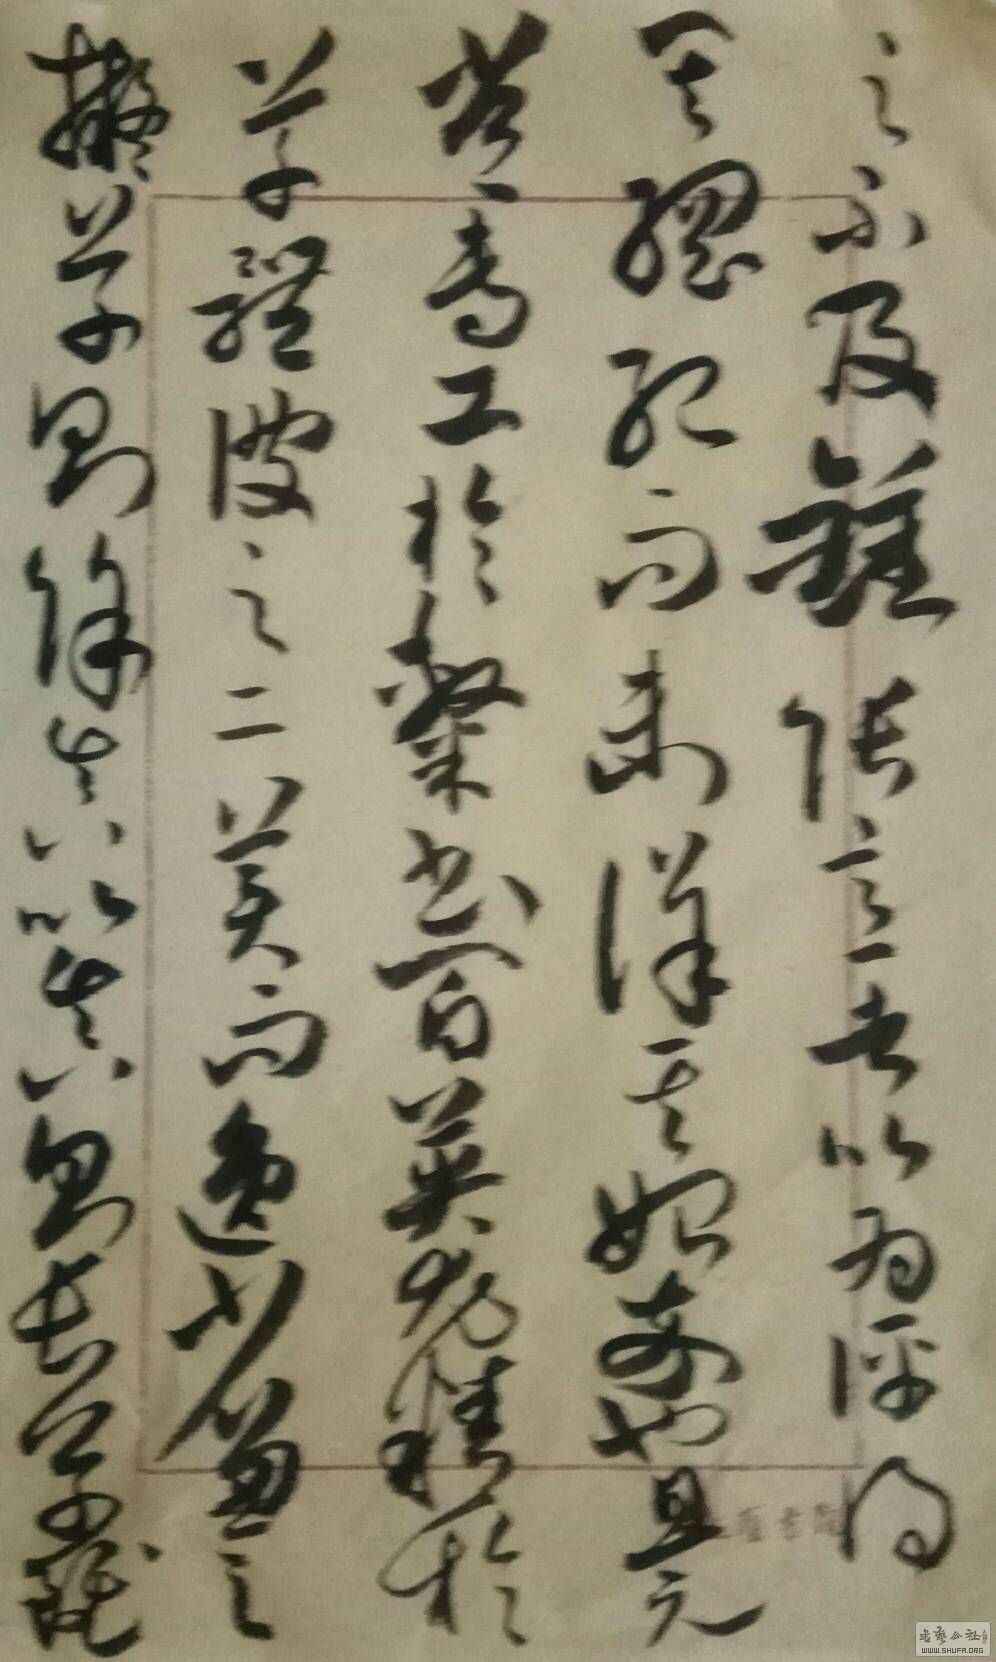 之不及鍾張意者以為評得
其綱紀而未詳其始卒也且元
常專工於隸書百英尤精於
草體彼之二美而逸少兼之
擬草則餘真比真則長草雖
书艺公社
WWW.SHUFA.ORG